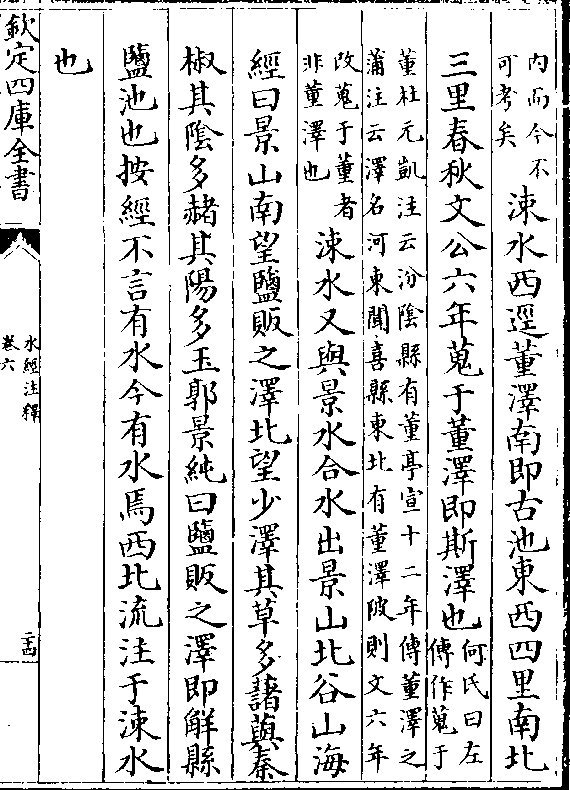 内而今不
可考矣
涑水西逕董澤南即古池東西四里南北
三里春秋文公六年蒐于董澤即斯澤也
何氏曰左
傳作蒐于
董杜元凱注云汾陰縣有董亭宣十二年傳董澤之
蒲注云澤名河東聞喜縣東北有董澤陂則文六年
改蒐于董者
非董澤也
涑水又與景水合水出景山北谷山海
經曰景山南望鹽販之澤北望少澤其草多藷藇秦
椒其陰多赭其陽多玉郭景純曰鹽販之澤即解縣
鹽池也按經不言有水今有水焉西北流注于涑水
也
欽定四庫全書
水經注釋
卷六